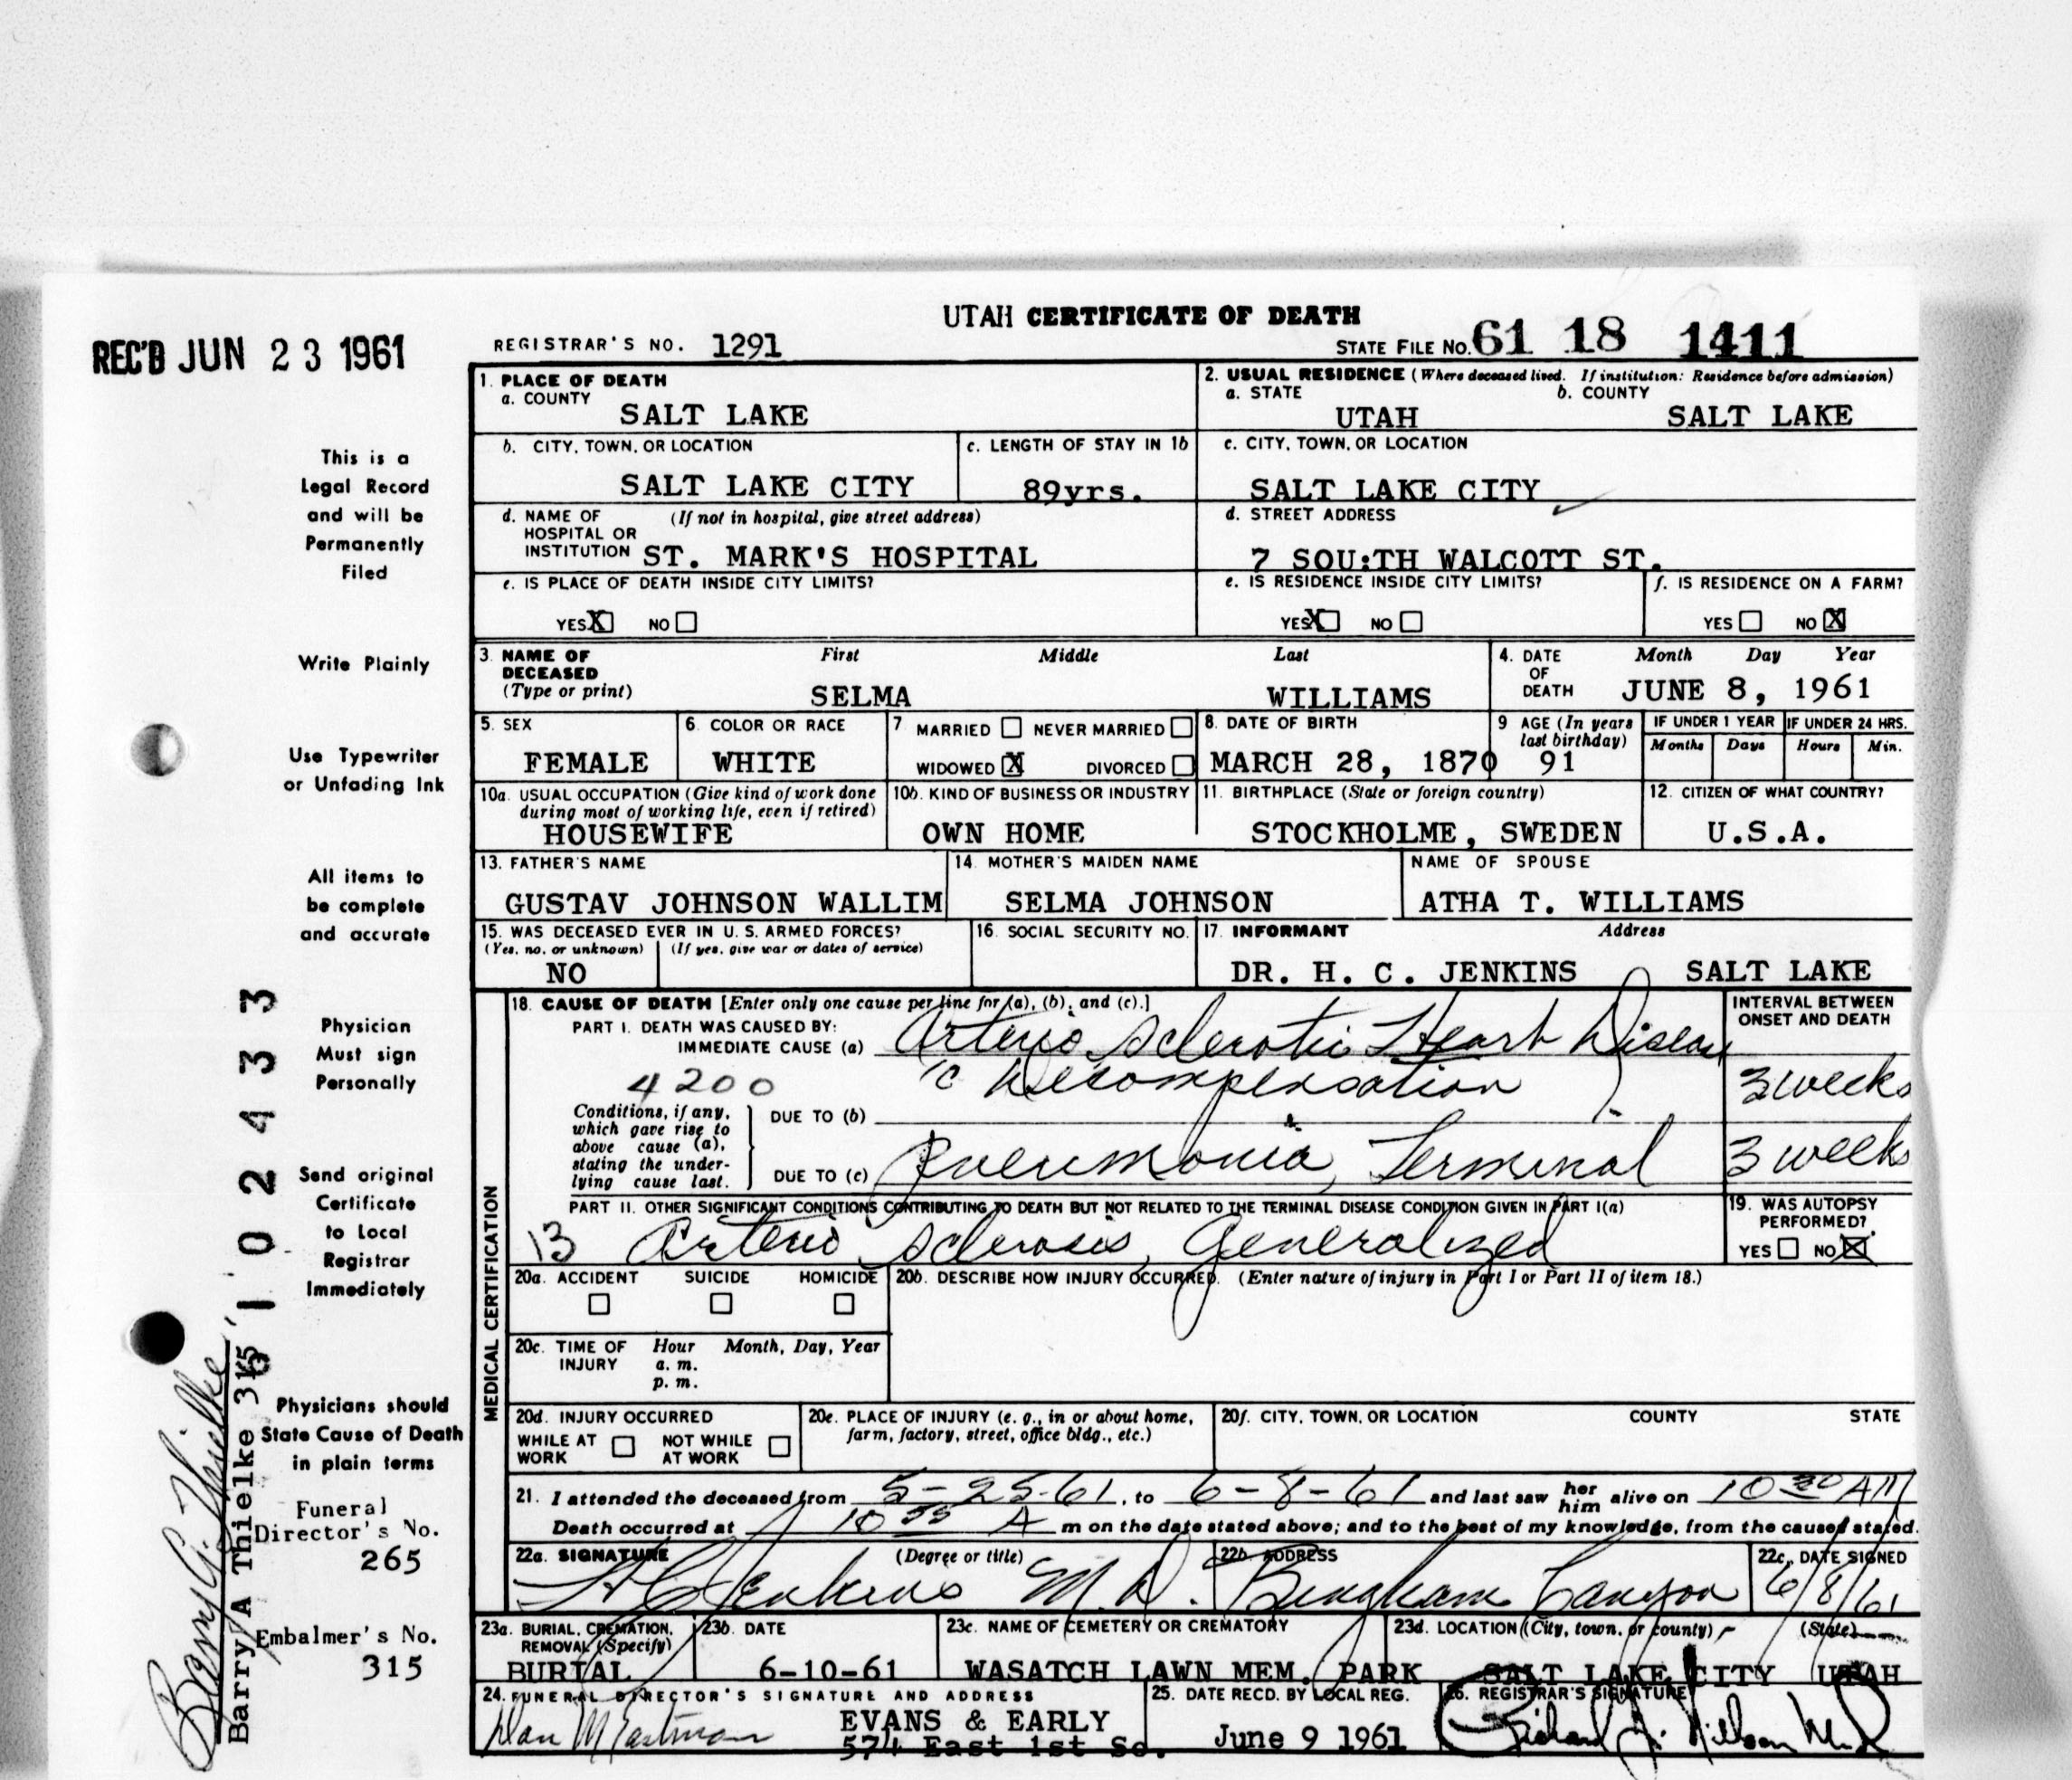 UTAH CERTIFICATE OF DEATH
REC'D JUN 23 1961
REGISTRAR'S NO. 1291
STATE FILE NO. 61 18 1411
1. PLACE OF DEATH
a. COUNTY
SALT LAKE
2. USUAL RESIDENCE (Where deceased lived. If institution: Residence before admission)
a. STATE b. COUNTY
UTAH SALT LAKE
b. CITY, TOWN, OR LOCATION
SALT LAKE CITY
c. LENGTH OF STAY IN 1b
89yrs.
c. CITY, TOWN, OR LOCATION
SALT LAKE CITY
d. NAME OF HOSPITAL OR INSTITUTION (If not in hospital, give street address)
ST. MARK'S HOSPITAL
d. STREET ADDRESS
7 SOU:TH WALCOTT ST.
e. IS PLACE OF DEATH INSIDE CITY LIMITS?
YES X NO
e. IS RESIDENCE INSIDE CITY LIMITS?
YES X NO
f. IS RESIDENCE ON A FARM?
YES NO X
3. NAME OF DECEASED (Type or print)
First Middle Last
SELMA WILLIAMS
4. DATE OF DEATH
Month Day Year
JUNE 8, 1961
5. SEX
FEMALE
6. COLOR OR RACE
WHITE
7 MARRIED NEVER MARRIED
WIDOWED X DIVORCED
8. DATE OF BIRTH
MARCH 28, 1870
9 AGE (In years last birthday)
91
IF UNDER 1 YEAR
Months Days
IF UNDER 24 HRS.
Hours Min.
10a. USUAL OCCUPATION (Give kind of work done during most of working life, even if retired)
HOUSEWIFE
10b. KIND OF BUSINESS OR INDUSTRY
OWN HOME
11. BIRTHPLACE (State or foreign country)
STOCKHOLME, SWEDEN
12. CITIZEN OF WHAT COUNTRY?
U.S.A.
13. FATHER'S NAME
GUSTAV JOHNSON WALLIM
14. MOTHER'S MAIDEN NAME
SELMA JOHNSON
NAME OF SPOUSE
ATHA T. WILLIAMS
15. WAS DECEASED EVER IN U. S. ARMED FORCES?
(Yes, no, or unknown) (If yes, give war or dates of service)
NO
16. SOCIAL SECURITY NO.
17. INFORMANT Address
DR. H. C. JENKINS SALT LAKE
MEDICAL CERTIFICATION
18. CAUSE OF DEATH [Enter only one cause per line for (a), (b), and (c).]
INTERVAL BETWEEN ONSET AND DEATH
PART I. DEATH WAS CAUSED BY:
IMMEDIATE CAUSE (a) Arterio Sclerotic Heart Disease
4200 c Decompensation 3 weeks
Conditions, if any, which gave rise to above cause (a), stating the underlying cause last.
DUE TO (b)
DUE TO (c) Pneumonia, Terminal 3 weeks
PART II. OTHER SIGNIFICANT CONDITIONS CONTRIBUTING TO DEATH BUT NOT RELATED TO THE TERMINAL DISEASE CONDITION GIVEN IN PART I(a)
13 Arterio Sclerosis, Generalized
19. WAS AUTOPSY PERFORMED?
YES NO X
20a. ACCIDENT SUICIDE HOMICIDE
20b. DESCRIBE HOW INJURY OCCURRED. (Enter nature of injury in Part I or Part II of item 18.)
20c. TIME OF INJURY
Hour Month, Day, Year
a. m.
p. m.
20d. INJURY OCCURRED
WHILE AT WORK NOT WHILE AT WORK
20e. PLACE OF INJURY (e. g., in or about home, farm, factory, street, office bldg., etc.)
20f. CITY, TOWN, OR LOCATION COUNTY STATE
21. I attended the deceased from 5-25-61, to 6-8-61 and last saw her him alive on 10 30 AM
Death occurred at 10 55 A m on the date stated above; and to the best of my knowledge, from the causes stated.
22a. SIGNATURE (Degree or title)
H C Jenkins M.D.
22b. ADDRESS
Bingham Canyon
22c. DATE SIGNED
6/8/61
23a. BURIAL, CREMATION, REMOVAL (Specify)
BURIAL
23b. DATE
6-10-61
23c. NAME OF CEMETERY OR CREMATORY
WASATCH LAWN MEM. PARK
23d. LOCATION (City, town, or county) (State)
SALT LAKE CITY UTAH
24. FUNERAL DIRECTOR'S SIGNATURE AND ADDRESS
Dan M Eastman
EVANS & EARLY
574 East 1st So.
25. DATE RECD. BY LOCAL REG.
June 9 1961
26. REGISTRAR'S SIGNATURE
This is a
Legal Record
and will be
Permanently
Filed
Write Plainly
Use Typewriter
or Unfading Ink
All items to
be complete
and accurate
Physician
Must sign
Personally
Send original
Certificate
to Local
Registrar
Immediately
Physicians should
State Cause of Death
in plain terms
Funeral
Director's No.
265
Embalmer's No.
315
Barry A. Thielke
Barry A Thielke 315
6 1 0 2 4 3 3